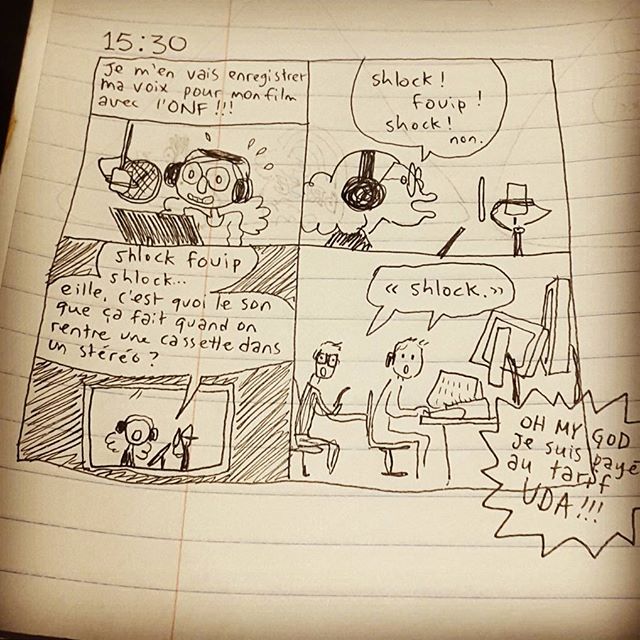 15:30
Je m'en vais enregistrer
ma voix pour mon film
avec l'ONF!!!
shlock!
fouip!
shock!
non.
shlock fouip
shlock...
eille, c'est quoi le son
que ça fait quand on
rentre une cassette dans
un stéréo?
« shlock. »
OH MY GOD
Je suis payé
au tarif
UDA!!!